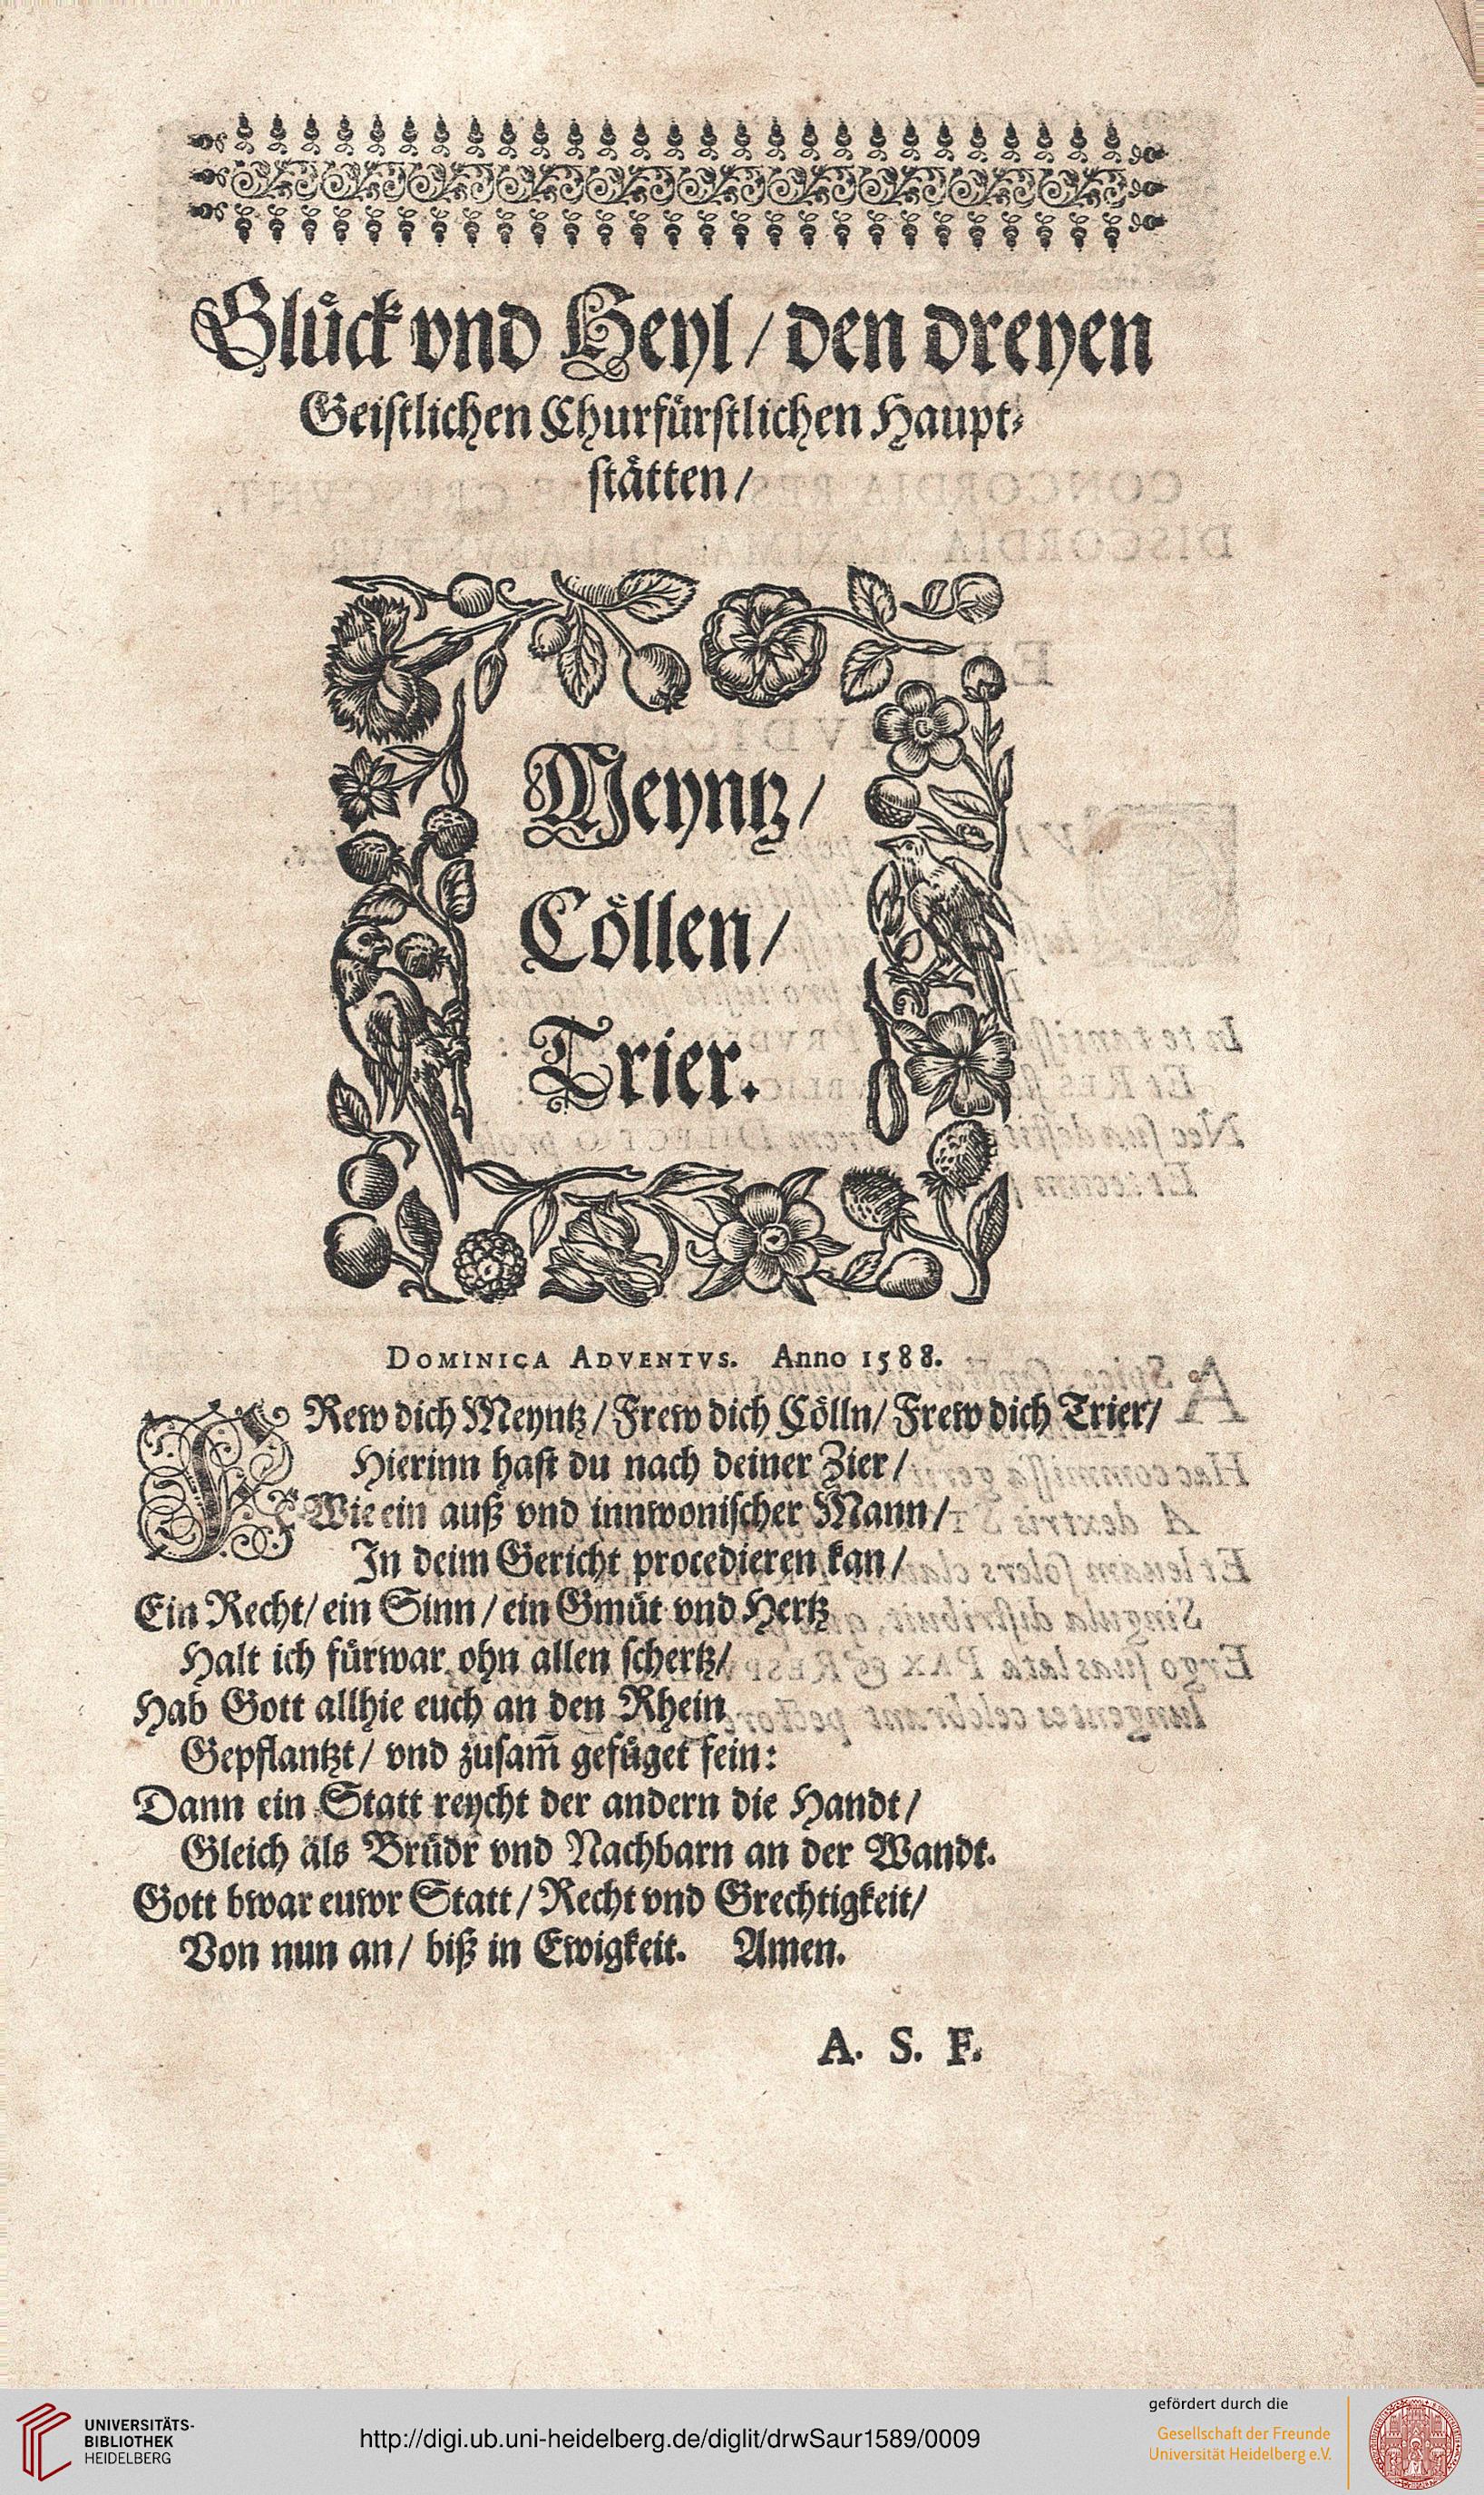 Glůck vnd Heyl / den dreyen
Geiſtlichen Churfůrſtlichen Haupt-
ſtåtten /
Meyntz /
Cöllen /
Trier.
DOMINICA ADVENTVS. Anno 1588.
FRew dich Meyntz / Frew dich Cölln / Frew dich Trier /
Hierinn haſt du nach deiner Zier /
Wie ein auß vnd innwoniſcher Mann /
In deim Gericht procedieren kan /
Ein Recht / ein Sinn / ein Gmüt vnd Hertz
Halt ich fürwar ohn allen ſchertz /
Hab Gott allhie euch an den Rhein
Gepflantzt / vnd zuſam̃ gefüget fein:
Dann ein Statt reycht der andern die Handt /
Gleich als Brüdr vnd Nachbarn an der Wandt.
Gott bwar euwr Statt / Recht vnd Grechtigkeit /
Von nun an / biß in Ewigkeit. Amen.
A. S. F.
UNIVERSITÄTS-
BIBLIOTHEK
HEIDELBERG
http://digi.ub.uni-heidelberg.de/diglit/drwSaur1589/0009
gefördert durch die
Gesellschaft der Freunde
Universität Heidelberg e.V.